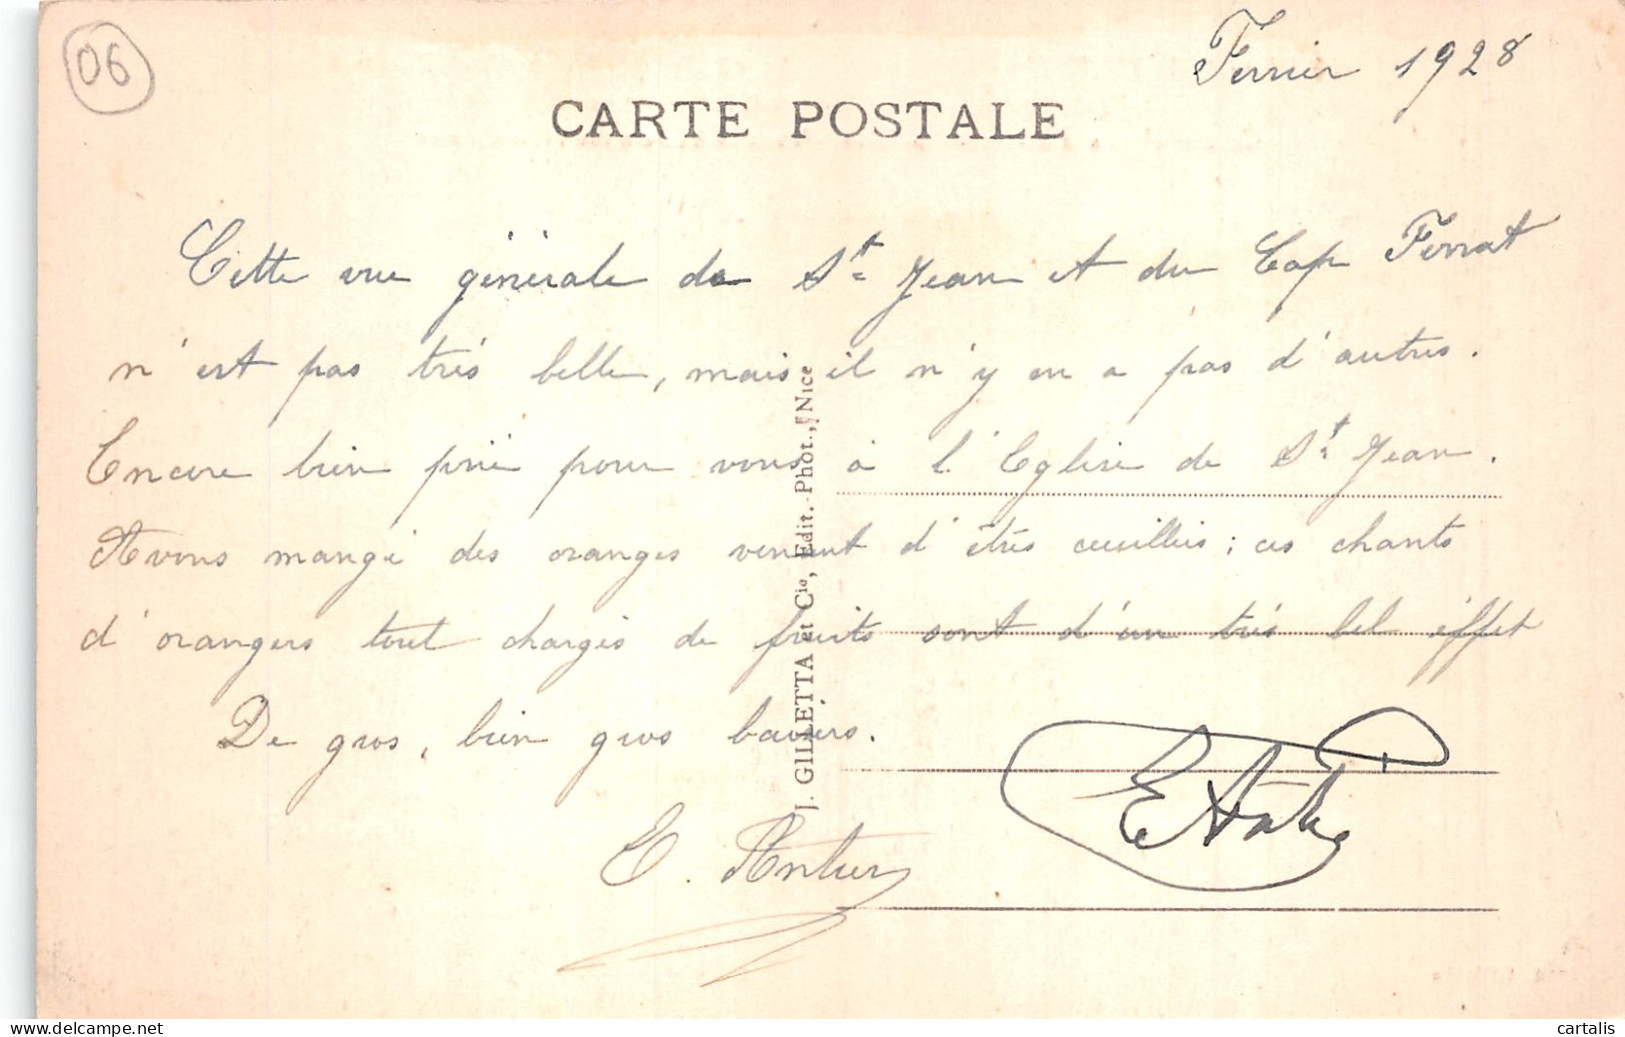 06
Février 1928
CARTE POSTALE
Cette vue générale de St Jean et du Cap Ferrat
n'est pas très belle, mais il n'y en a pas d'autres.
Encore bien prié pour vous à l'Eglise de St Jean.
Avons mangé des oranges venant d'êtres cueillies ; ces chants
d'orangers tout chargés de fruits sont d'un très bel éffet
De gros, bien gros baisers.
E. Antier
J. GILLETTA et Cie, Edit. Phot., Nice
delcampe.net
cartalis